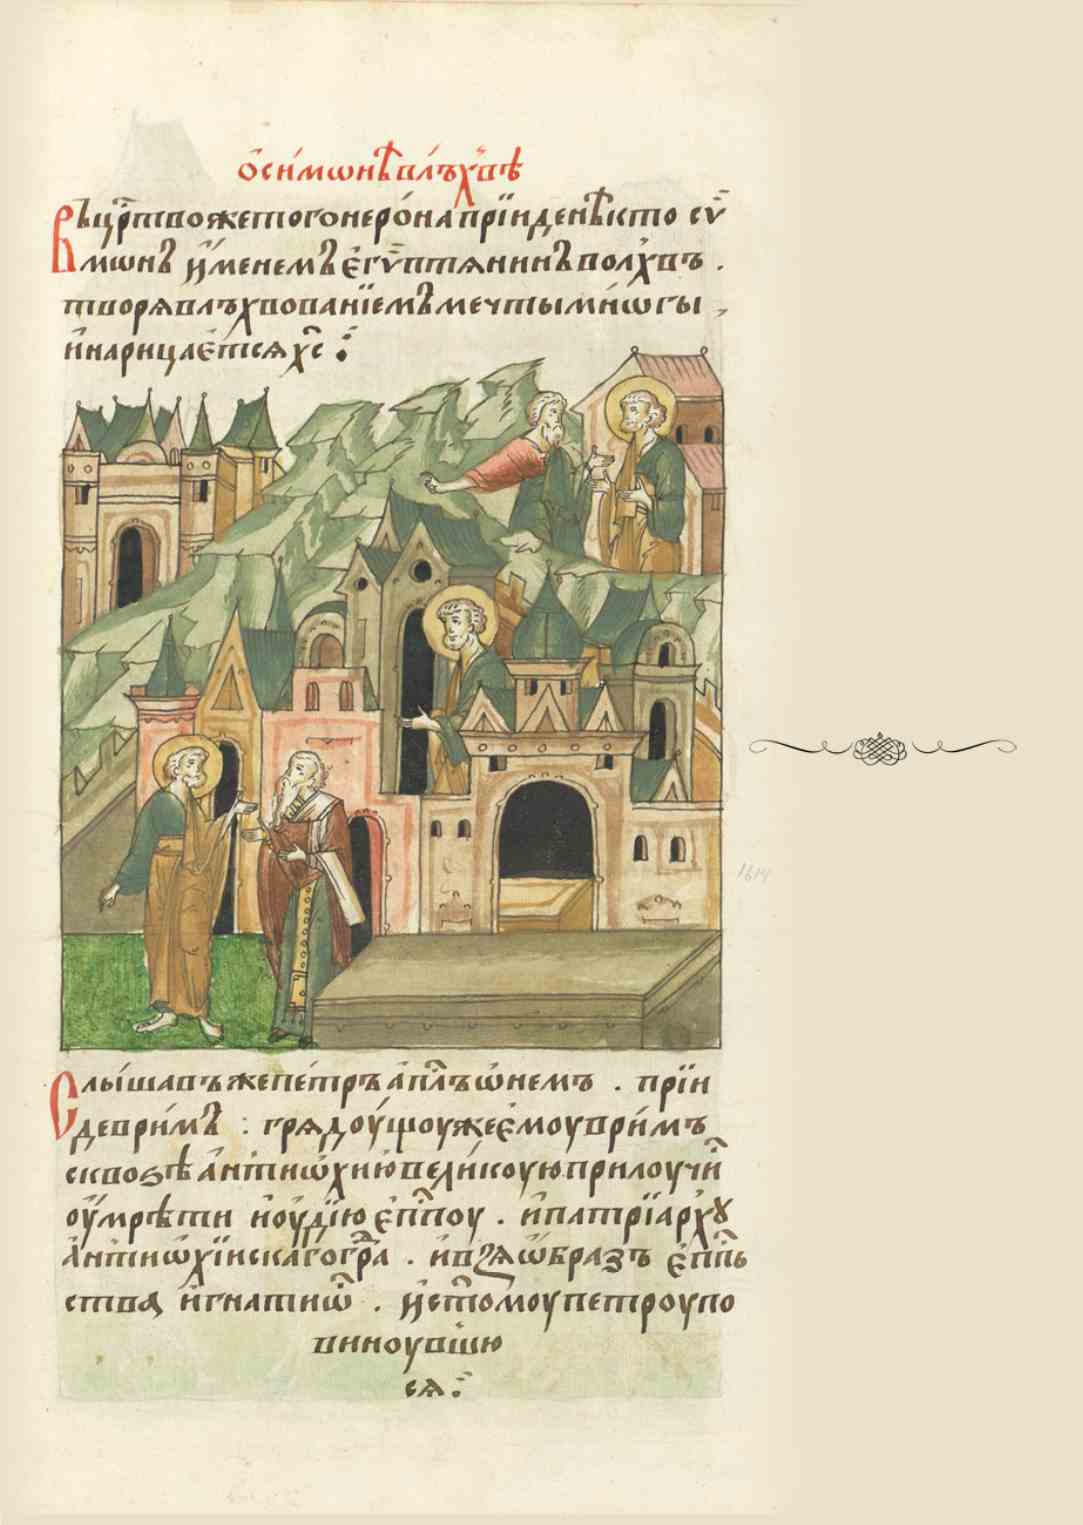 ѻ҆ си́мѡнѣ влъ́хвѣ
Въ црⷭ҇тво же того неро́на прїи́де нѣкто сѵ
мѡнъ и҆́менемъ є҆гѵ́птянинъ волхвъ .
творя влъхвованїемъ мечты мнѡгы ,
и҆ нарицаєтся хс :
Слы́шавъ же пе́тръ а҆плъ ѡ҆ немъ . прїи
де в ри́мъ : гряду́щоу же є҆моу в ри́мъ
сквоѕѣ а҆нтиѡхию вели́коую прилоучи
оу҆мрѣти и҆оу́дїю є҆ппоу . и҆ патрїарху
а҆нтиѡхїискаго гра . и҆ взя ѡ҆бразъ є҆ппь
ства и҆гнатиѡ . и҆ стомоу петроу по
виноувшю
ся :
1614